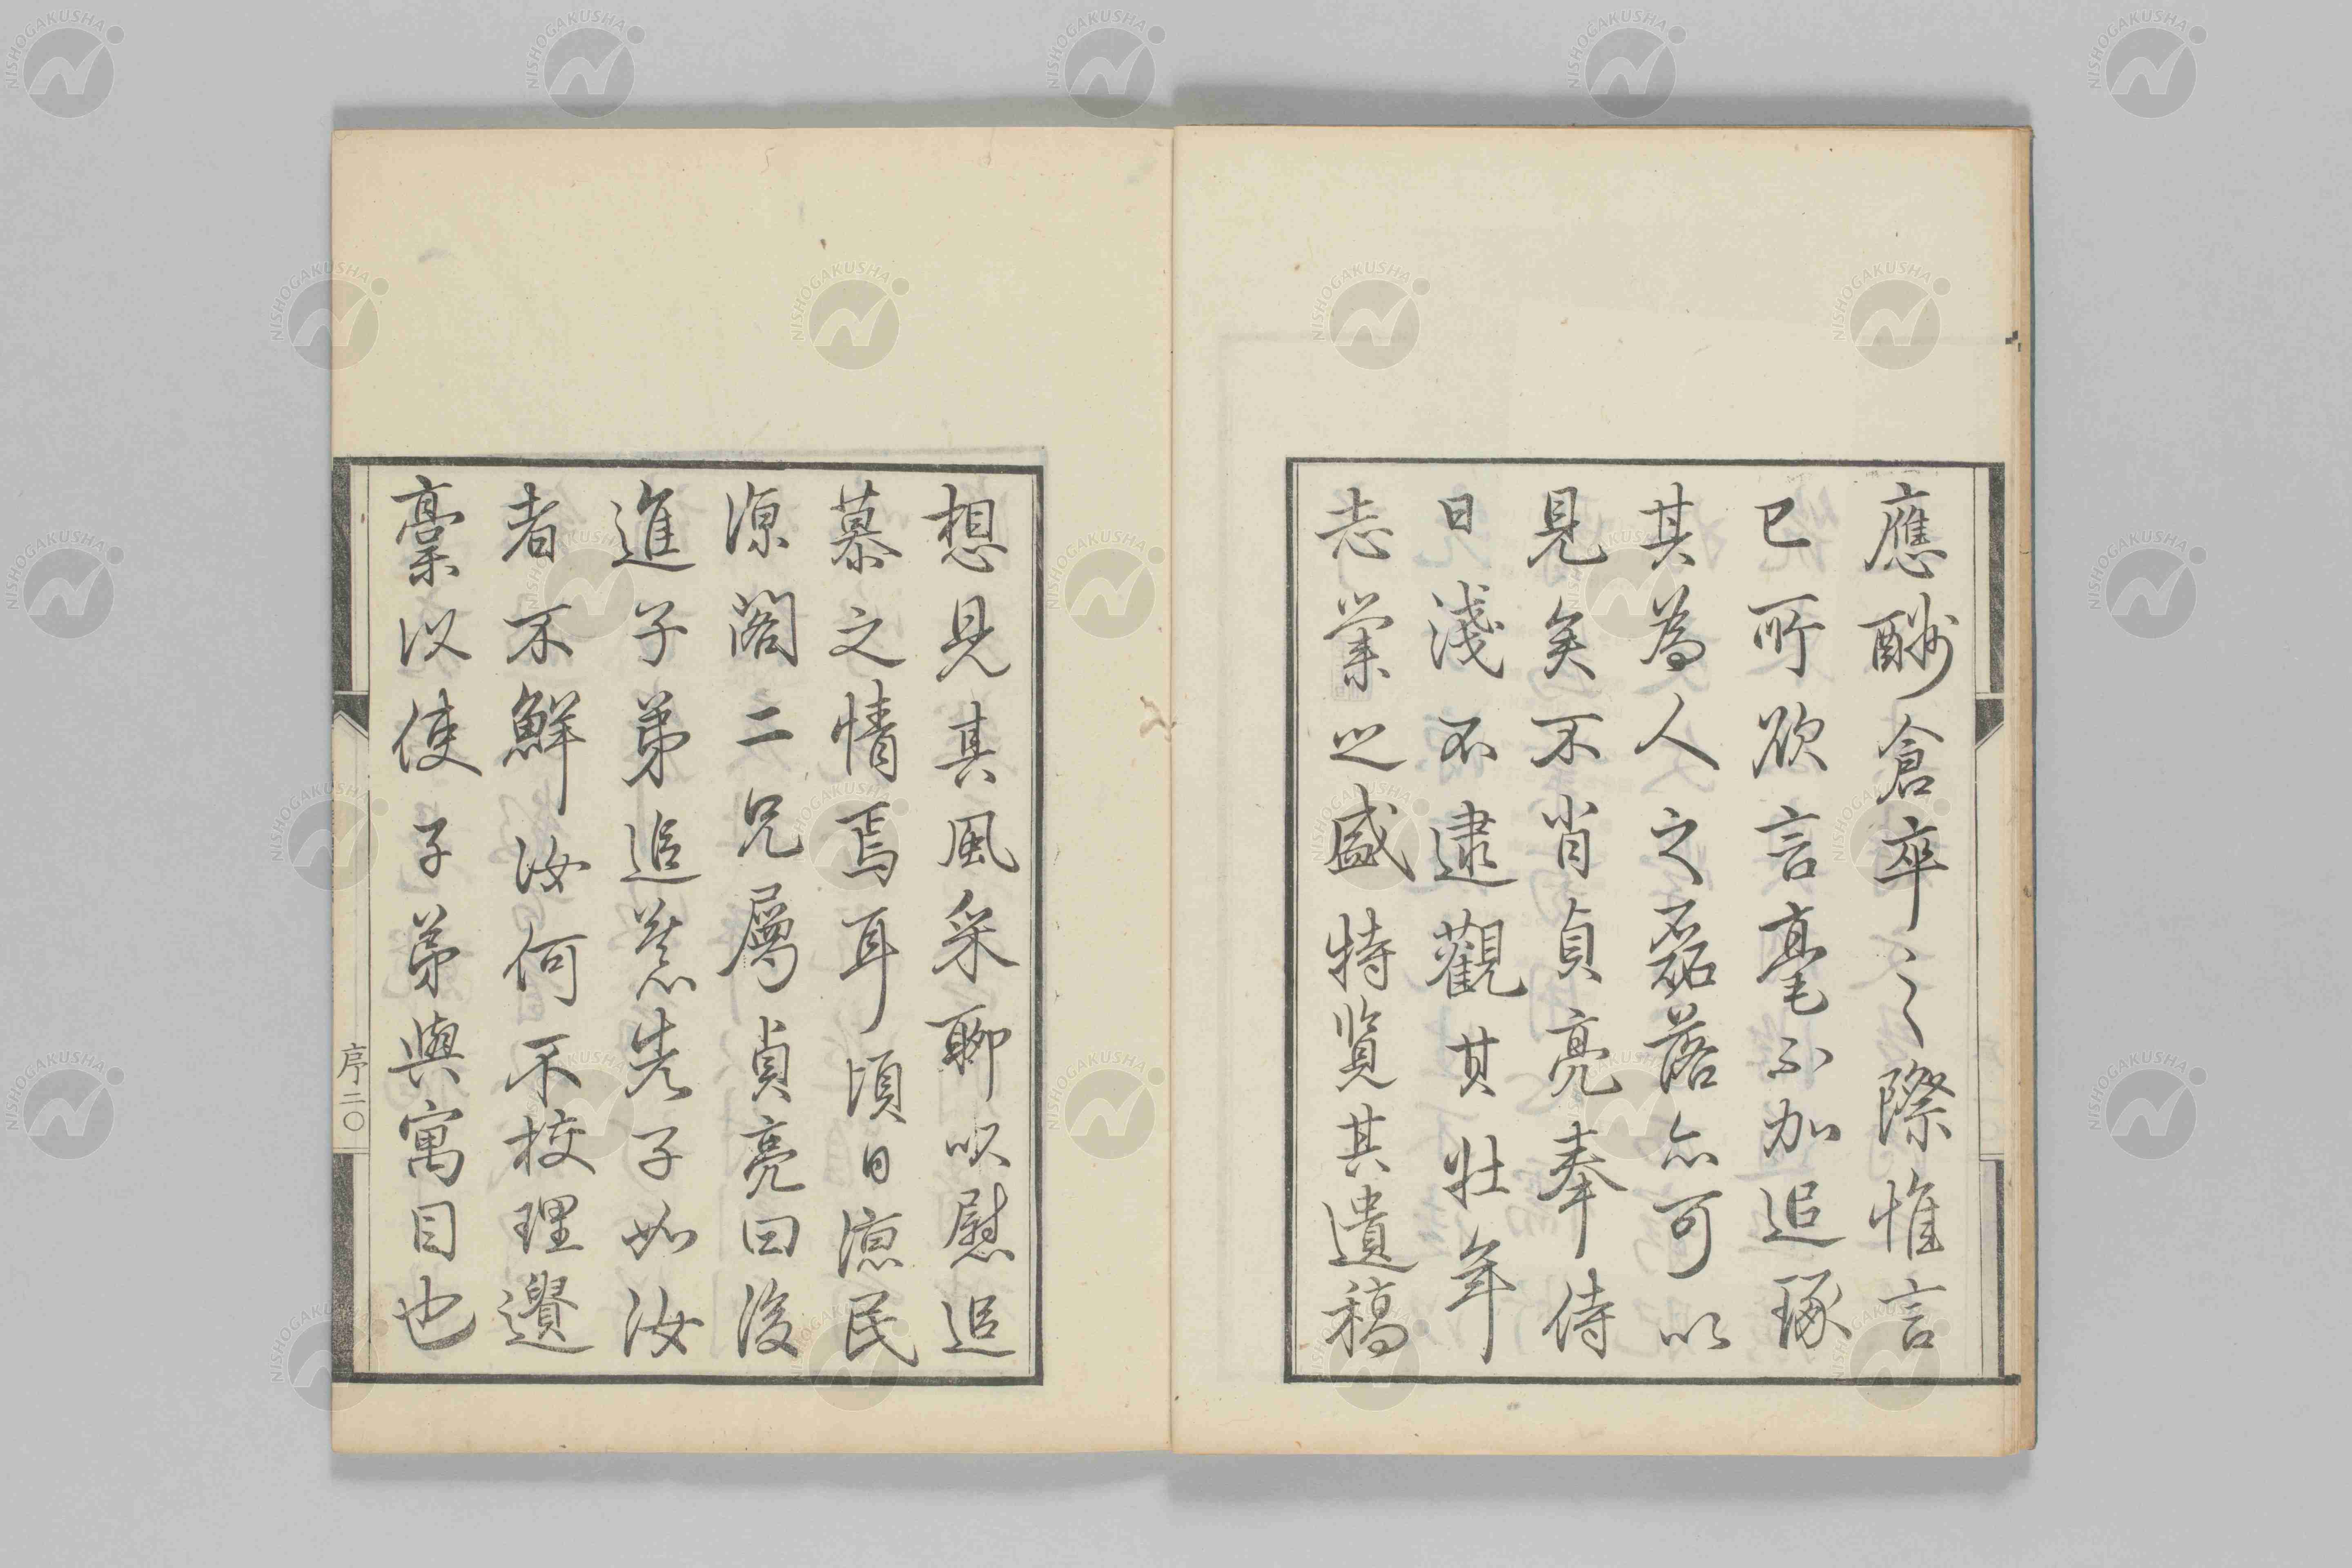 應酬倉卒之際惟言
已所欲言毫不加追琢
其為人之磊落亦可以
見矣不肖貞亮奉侍
日淺不逮觀其壯年
志業之盛特覽其遺稿
想見其風采聊以慰追
慕之情焉耳頃日源民
源閣二兄屬貞亮曰後
進子弟追慕先子如汝
者不鮮汝何不校理遺
稾以使子弟與寓目也
序二〇
NISHOGAKUSHA